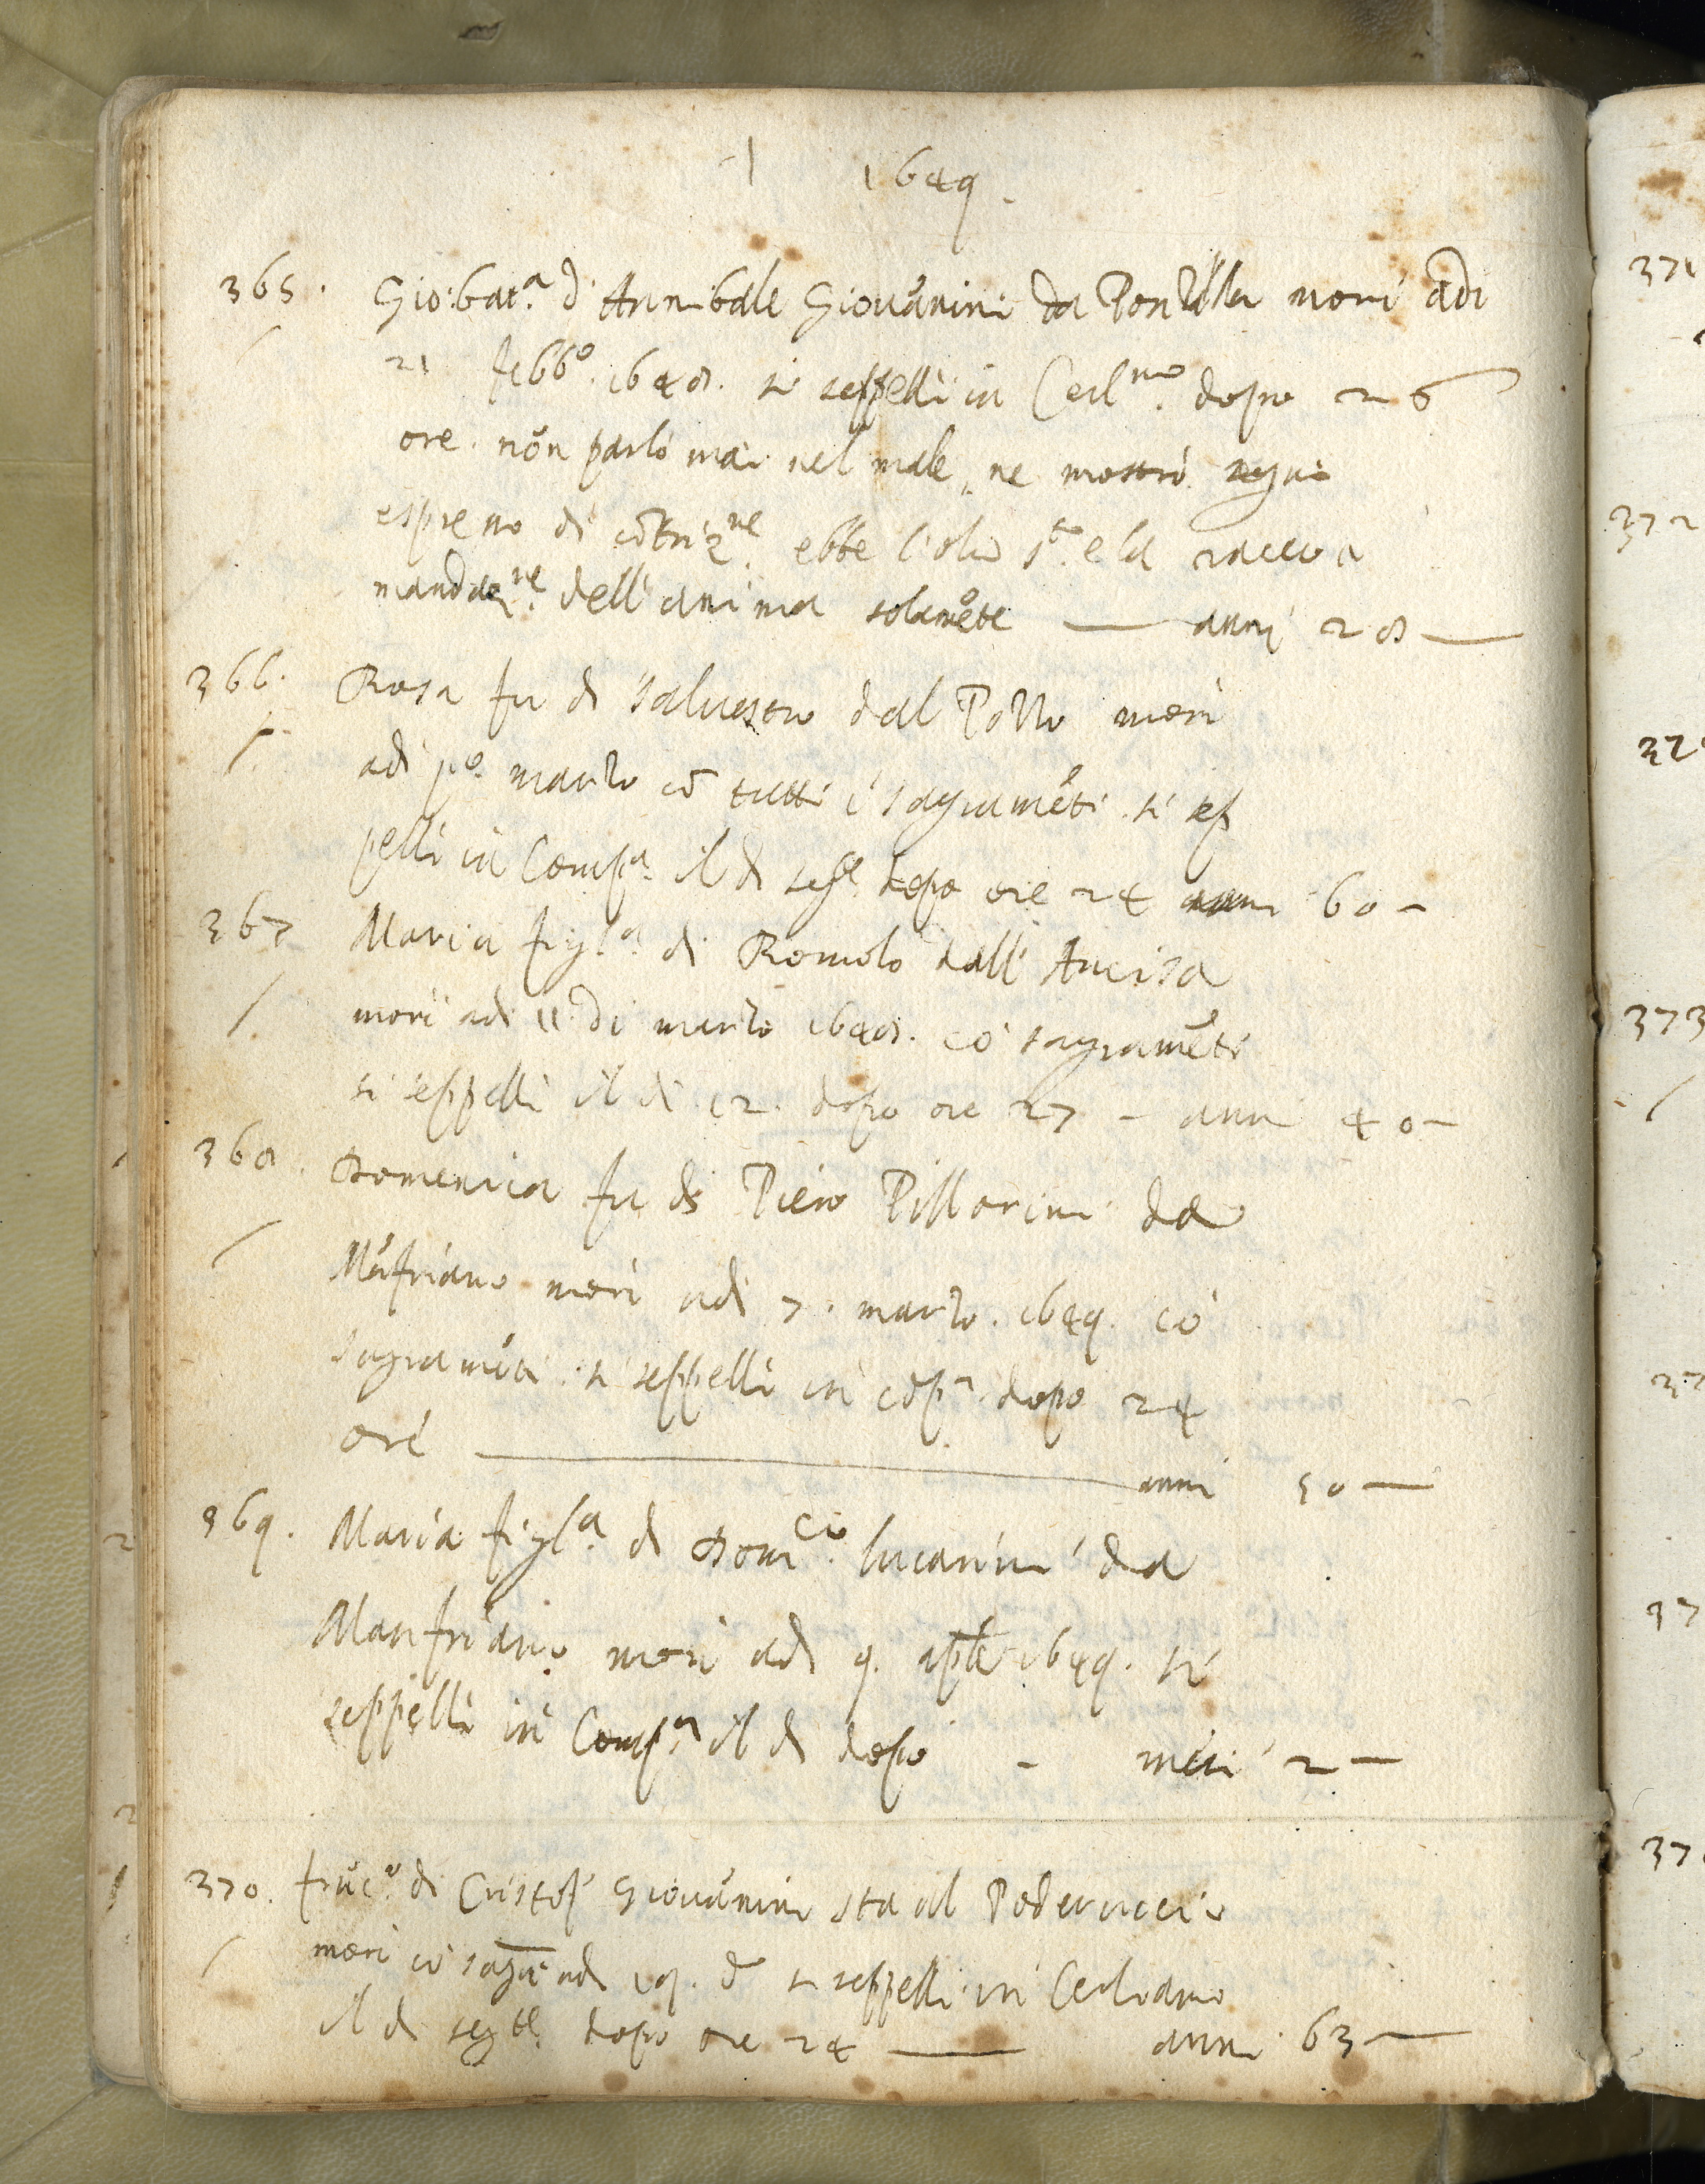 1649.
365. Gio: Bat.a d'Annibale Giovānini da Pontilla morì adi
21 Febb.o 1648. si seppellì in Cerl.no dopo 26
ore. nōn parlò mai nel male, ne mostrò segni
espresso di cōtriz.ne ebbe l'olio s.to e la racco
mandaz.ne dell'anima solamēte — anni 28 —
366. Rosa fu di Salvestro dal Pozzo morì
adi p.o marzo cō tutti i sagramēti. si sep
pellì in Comp.a il dì seg.te dopo ore 24 anni 60 -
367 Maria figl.a di Romolo dall'Ancisa
morì adi 11 di marzo 1648. cō sagramēti
si seppellì il dì 12. dopo ore 27 - anni 40 -
368. Domenica fu di Piero Pillorini da
Māfriano morì adi 7. marzo. 1649. cō
sagramēti. si seppellì in cōp.a dopo 24
ore — anni 50 —
369. Maria figl.a di Dom.co Lucarini da
Manfriano morì adi 9. aple 1649. si
seppellì in Comp.a il dì dopo - mesi 2 —
370. Frāc.o di Cristof.o Giovānini sta al Poderuccio
morì cō sagrī adi 19. d.o si seppellì in Cerliano
il dì seg.te dopo ore 24 — anni 63 —
371
372
373